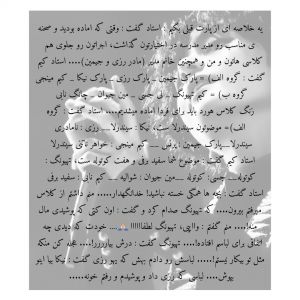 یه خلاصه ای از پارت قبل بگم : استاد گفت : وقتی که اماده بودید و صحنه
ی مناسب رو مدیر مدرسه در اختیارتون گذاشت، اجراتون رو جلوی هم
کلاسی هاتون و من و همچنین خانم مدیر (مادر رزی و جیمین).... استاد کیم
گفت : گروه الف) = پارک جیمین _ پارک رزی _ پارک نیکا _ کم مینجی
گروه ب) = کیم تهیونگ _ نانی جنی _ مین جیوان _ چانگ نانی
زنگ کلاس هورد باید برای فردا اماده میشدیم..... استاد گفت گروه
الف) = موضوعتون سیندرلاست، نیکا : سیندرلا..... رزی : نامادری
سیندرلا....پارک جیمین : پرنس ..... کیم مینجی : خواهر ناتنی سیندرلا
استاد کیم گفت : موضوع شما سفید برفی و هفت کوتوله ست، تهیونگ :
کوتوله..... جنی: کوتوله ..... مین جیوان : شوالیه .... کیم نانی : سفید برفی
استاد گفت : بچه ها همگی خسته نباشید! خدانگهدار..... منم داشتم از کلاس
میرفتم بیرون..... که تهیونگ صدام کرد و گفت : اون کتی که پوشیدی مال
منه!.... منم گفتم : وااایی، تهیونگ لطفااااااا 🙏.... خودت که دیدی چه
اتفاقی برای لباسم افتاده!.... تهیونگ گفت : درش بیارررر!.... عجله کن منکه
مثل تو بیکار نیستم!.... لباسش رو دادم بهش که یهو رزی گفت : نیکا بیا اینو
بپوش.... لباسی که رزی داد و پوشیدم و رفتم خونه.....